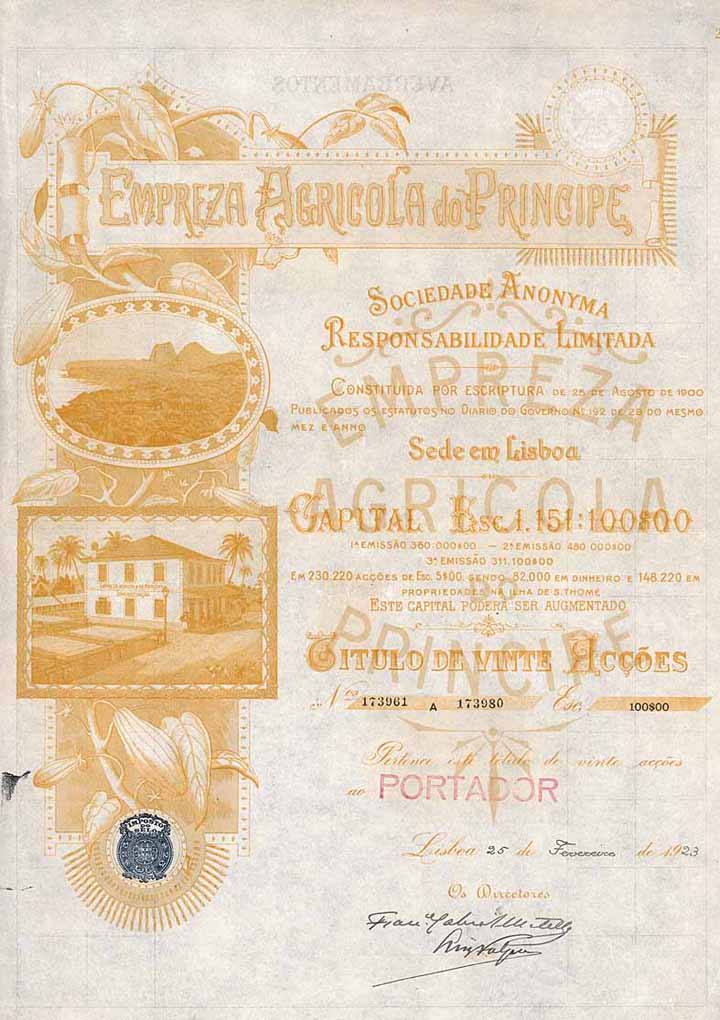 AVERBAMENTOS
EMPREZA AGRICOLA do PRINCIPE
SOCIEDADE ANONYMA
RESPONSABILIDADE LIMITADA
CONSTITUIDA POR ESCRIPTURA DE 25 DE AGOSTO DE 1900
PUBLICADOS OS ESTATUTOS NO DIARIO DO GOVERNO Nº 192 DE 28 DO MESMO
MEZ E ANNO
Sede em Lisboa
CAPITAL Esc. 1.151:100$00
1ª EMISSÃO 360.000$00. — 2ª EMISSÃO 480.000$00
3ª EMISSÃO 311.100$00
EM 230.220 ACÇÕES DE ESC. 5$00, SENDO 82.000 EM DINHEIRO E 148.220 EM
PROPRIEDADES NA ILHA DE S. THOMÉ
ESTE CAPITAL PODERÁ SER AUGMENTADO
EMPREZA
AGRICOLA
DO
PRINCIPE
TITULO DE VINTE ACÇÕES
Nos 173961 A 173980 Esc. 100$00
Pertence este titulo de vinte acções
ao PORTADOR
IMPOSTO
DO
SELO
Lisboa 25 de Fevereiro de 1923
Os Directores